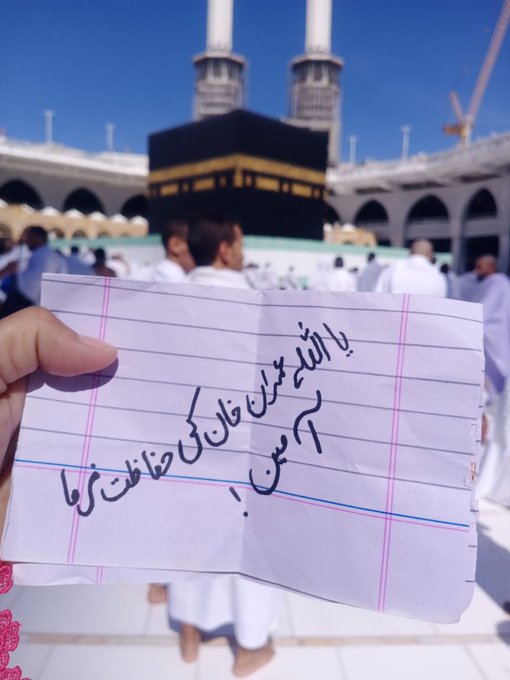 یا اللہ عمران خان کی حفاظت فرما
آمین !